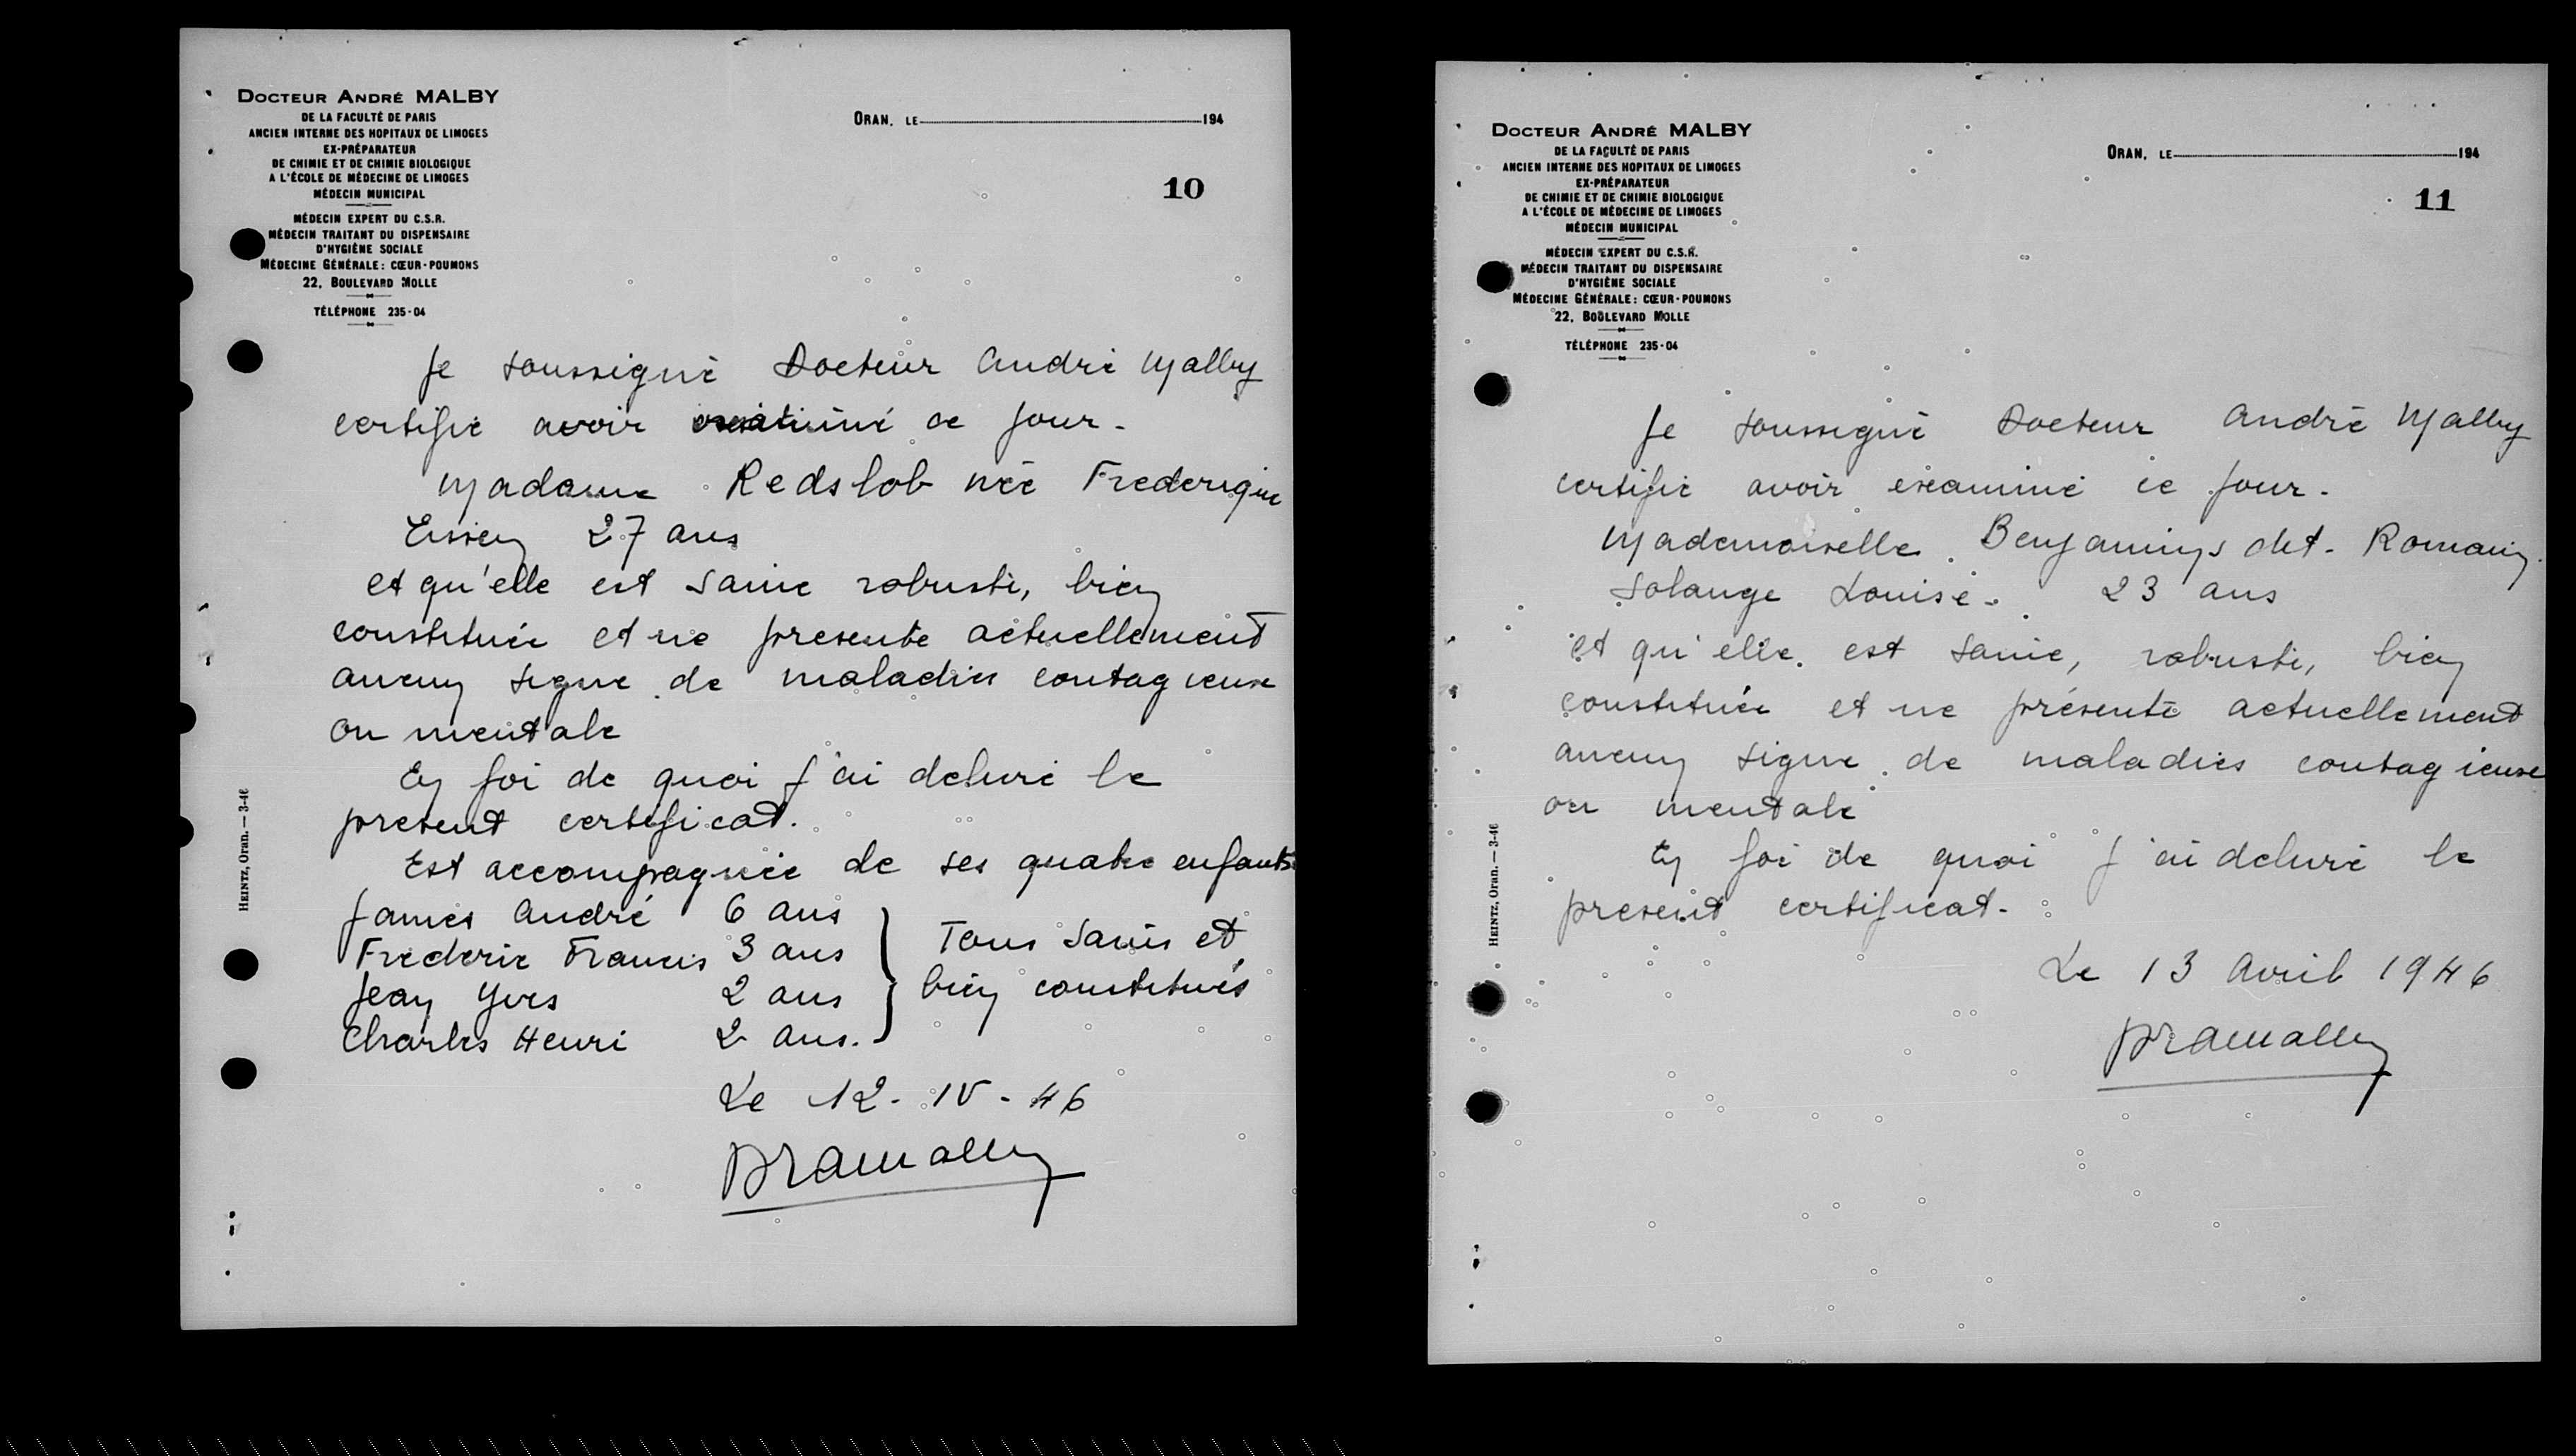 DOCTEUR ANDRÉ MALBY
DE LA FACULTÉ DE PARIS
ANCIEN INTERNE DES HOPITAUX DE LIMOGES
EX-PRÉPARATEUR
DE CHIMIE ET DE CHIMIE BIOLOGIQUE
A L'ÉCOLE DE MÉDECINE DE LIMOGES
MÉDECIN MUNICIPAL
MÉDECIN EXPERT DU C.S.R.
MÉDECIN TRAITANT DU DISPENSAIRE
D'HYGIÈNE SOCIALE
MÉDECINE GÉNÉRALE: CŒUR-POUMONS
22, BOULEVARD MOLLE
TÉLÉPHONE 235-04
ORAN, LE 194
10
Je soussigné Docteur André Malby
certifie avoir examiné ce jour.
Madame Redslob née Frederique
27 ans
et qu'elle est saine robuste, bien
constituée et ne presente actuellement
aucun signe de maladies contagieuse
ou mentale
En foi de quoi j'ai delivré le
present certificat.
Est accompagnée de ses quatre enfants
James André 6 ans
Frederic Francis 3 ans
Jean Yves 2 ans
Charles Henri 2 ans.
Tous sains et
bien constitués
Le 12-IV-46
DrAMalby
HEINTZ, Oran. — 3-46
DOCTEUR ANDRÉ MALBY
DE LA FACULTÉ DE PARIS
ANCIEN INTERNE DES HOPITAUX DE LIMOGES
EX-PRÉPARATEUR
DE CHIMIE ET DE CHIMIE BIOLOGIQUE
A L'ÉCOLE DE MÉDECINE DE LIMOGES
MÉDECIN MUNICIPAL
MÉDECIN EXPERT DU C.S.R.
MÉDECIN TRAITANT DU DISPENSAIRE
D'HYGIÈNE SOCIALE
MÉDECINE GÉNÉRALE: CŒUR-POUMONS
22, BOULEVARD MOLLE
TÉLÉPHONE 235-04
ORAN, LE 194
11
Je soussigné Docteur André Malby
certifie avoir examiné ce jour.
Mademoiselle Benjamins dit. Romain
Solange Louise. 23 ans
et qu'elle est saine, robuste, bien
constituée et ne présente actuellement
aucun signe de maladies contagieuse
ou mentale
En foi de quoi j'ai delivré le
present certificat.
Le 13 Avril 1946
DrAMalby
HEINTZ, Oran. — 3-46